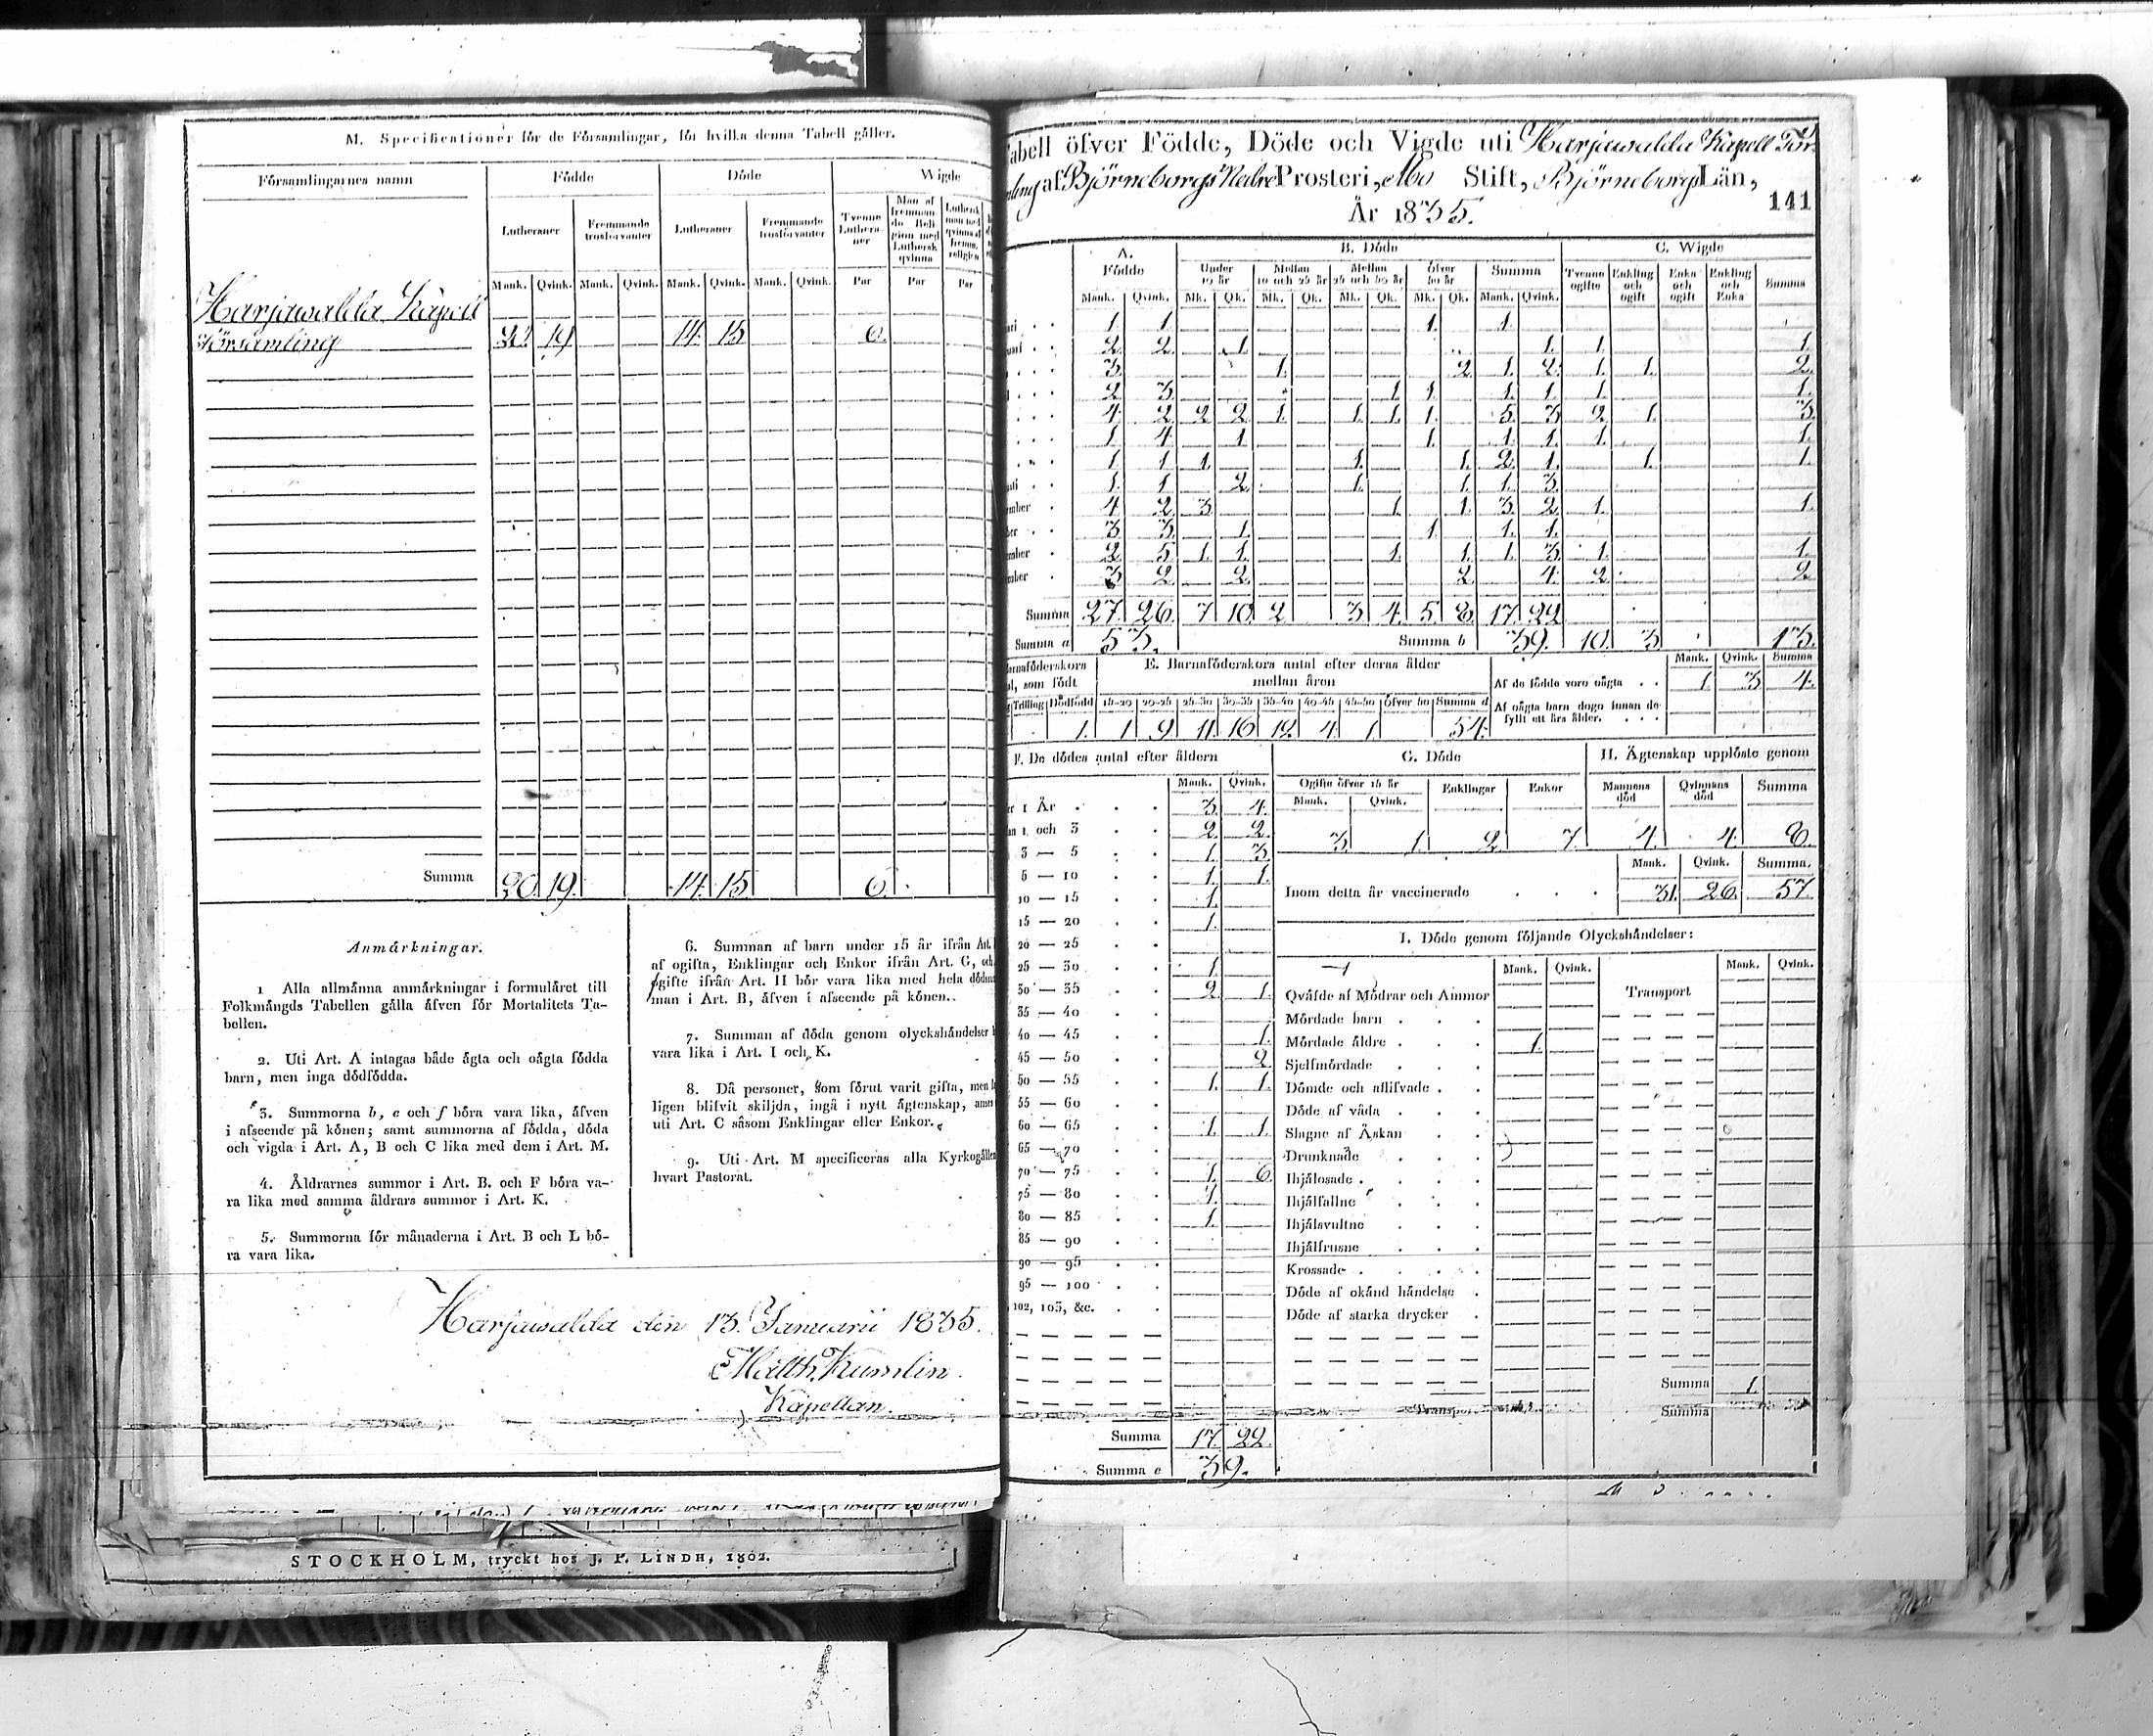 M. Specificationer för de Församlingar, för hvilka denna Tabell gäller.
Församlingarnes namn Födde Döde Wigde
Lutheraner Fremmande trosförvanter Lutheraner Fremmande trosförvanter Tvenne Lutheraner Man af fremmande Religion med Luthersk qvinna
Mank. Qvink. Mank. Qvink. Mank. Qvink. Mank. Qvink. Par Par Par
Harjawalda Kapell
Församling 19 14. 15 6.
Summa 20. 19. 14. 15 6.
Anmärkningar.
1 Alla allmänna anmärkningar i formuläret till
Folkmängds Tabellen gälla äfven för Mortalitets Ta-
bellen.
2. Uti Art. A intagas både ägta och oägta födda
barn, men inga dödfödda.
3. Summorna b, c och f böra vara lika, äfven
i afseende på könen; samt summorna af födda, döda
och vigda i Art. A, B och C lika med dem i Art. M.
4. Åldrarnes summor i Art. B. och F böra va-
ra lika med samma åldrars summor i Art. K.
5. Summorna för månaderna i Art. B och L bö-
ra vara lika.
6. Summan af barn under 15 år ifrån Art.
af ogifta, Enklingar och Enkor ifrån Art. G, och
gifte ifrån Art. H bör vara lika med hela
man i Art. B, äfven i afseende på könen.
7. Summan af döda genom olyckshändelser
vara lika i Art. I och K.
8. Då personer, som förut varit gifta, men
ligen blifvit skiljda, ingå i nytt ägtenskap,
uti Art. C såsom Enklingar eller Enkor.
9. Uti Art. M specificeras alla
hvart Pastorat.
Harjawalda den 13. Januarii 1835.
Matth. Kumlin.
Kapellan.
STOCKHOLM, tryckt hos J. P. LINDH, 1802.
abell öfver Födde, Döde och Vigde uti Harjawalda Kapell För-
ling af Björneborgs Nedre Prosteri, Åbo Stift, Björneborgs Län,
År 1835.
141
A. Födde B. Döde C. Wigde
Under 10 år Mellan 10 och 25 år Mellan 25 och 50 år öfver 50 år Summa Tvenne ogifte Enkling och ogift Enka och ogift Enkling och Enka Summa
Mank. Qvink. Mk. Qk. Mk. Qk. Mk. Qk. Mk. Qk. Mank. Qvink.
1. 1 1. 1.
2. 2. 1. 1. 1. 1.
3. 1. 2. 1. 2. 1. 1. 2.
2 3. 1 1. 1. 1. 1. 1.
4. 2 2 2. 1. 1. 1. 1. 5. 3. 2. 1. 3.
1 4. 1 1. 1. 1. 1. 1.
1 1 1. 1. 1. 2. 1. 1. 1.
1. 1 2. 1. 1. 1. 3.
mber 4 2. 3. 1. 1. 3. 2. 1. 1.
ber 3 3. 1. 1. 1. 1.
mber 2 5 1. 1. 1. 1. 1. 3. 1. 1.
mber 3 2. 2. 2. 4. 2. 2.
Summa 27. 26. 7 10. 2 3. 4. 5. 8. 17. 22
Summa a 53. Summa b 39. 10. 3 13.
E. Barnaföderskors antal efter deras ålder
mellan åren
Trilling Dödfödd 15-20 20-25 25-30 30-35 35-40 40-45 45-50 öfver 50 Summa d
1. 1 9. 11. 16 12. 4. 1 54.
Mank. Qvink. Summa
Af de födde voro oägta 1. 3. 4.
Af oägta barn dogo innan de
fyllt ett års ålder.
F. De dödes antal efter åldern
Mank. Qvink.
1 År 3. 4.
1 och 3 2. 2.
3 — 5 1. 3
5 — 10 1. 1.
10 — 15 1.
15 — 20 1.
20 — 25
25 — 30 1.
30 — 35 2. 1.
35 — 40
40 — 45 1.
45 — 50 2.
50 — 55 1. 1.
55 — 60
60 — 65 1. 1.
65 — 70
70 — 75 1. 6.
75 — 80 1.
80 — 85 1.
85 — 90
90 — 95
95 — 100
102, 103, &c.
Summa 17. 22.
Summa c 39.
G. Döde
Ogifte öfver 15 år Enklingar Enkor
Mank. Qvink.
3. 1. 2. 7.
H. Ägtenskap upplöste genom
Mannens död Qvinnans död Summa
4. 4. 8.
Mank. Qvink. Summa.
Inom detta år vaccinerade 31. 26. 57.
I. Döde genom följande Olyckshändelser:
Mank. Qvink. Mank. Qvink.
Qväfde af Mödrar och Ammor Transport
Mördade barn
Mördade äldre 1.
Sjelfmördade
Dömde och aflifvade
Döde af våda
Slagne af Åskan
Drunknade
Ihjälosade
Ihjälfallne
Ihjälsvultne
Ihjälfrusne
Krossade
Döde af okänd händelse
Döde af starka drycker
Summa 1.
Transport Summa